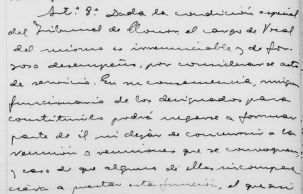 Art.º 8.º Dada la condición especial
del Tribunal de Honor, el cargo de Vocal
del mismo es irrenunciable y de for-
zoso desempeño, por considerarse acto
de servicio. En su consecuencia, ningún
funcionario de los designados para
constituirlo podrá negarse a formar
parte de él ni dejar de concurrir a la
reunión o reuniones que se convoquen,
y caso de que alguno de ellos incompa-
reciera a prestar esta función, el que